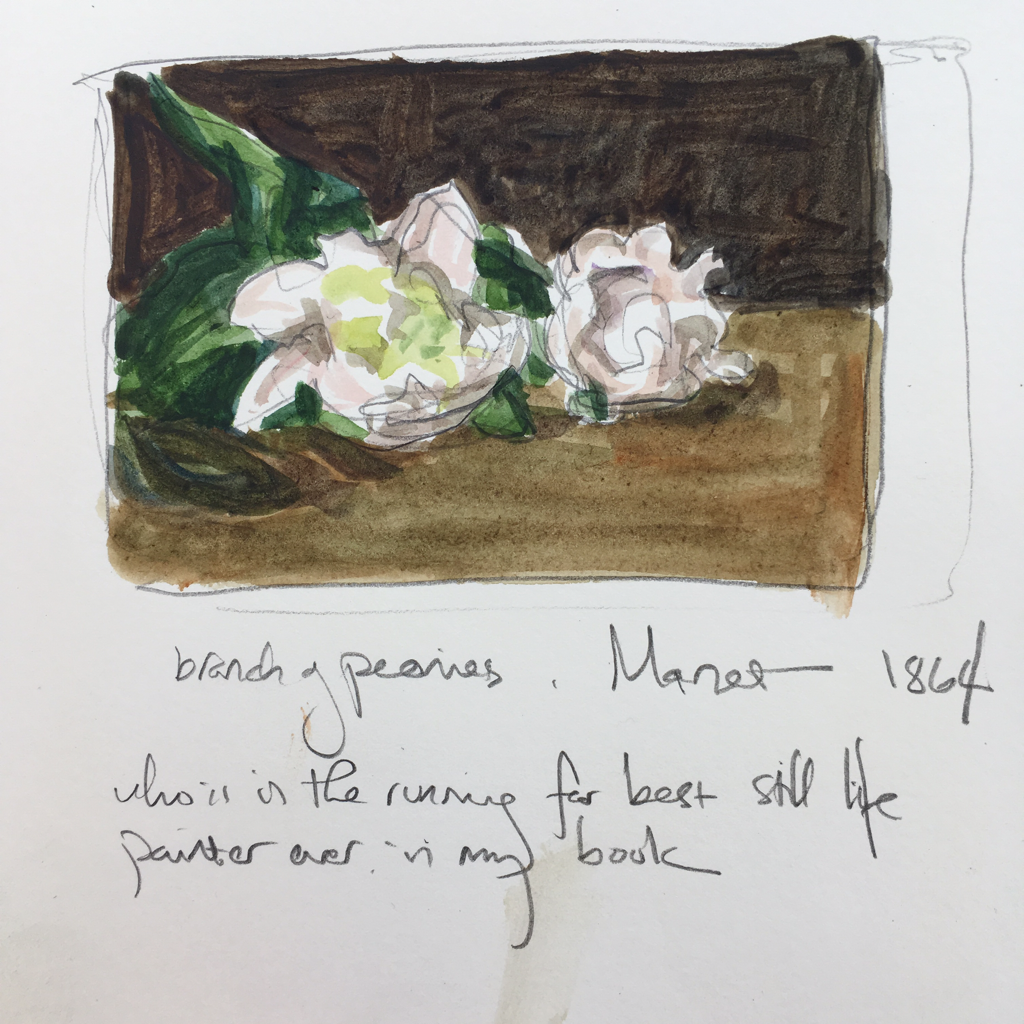 branch of peonies . Manet 1864
who is in the running for best still life
painter ever in my book